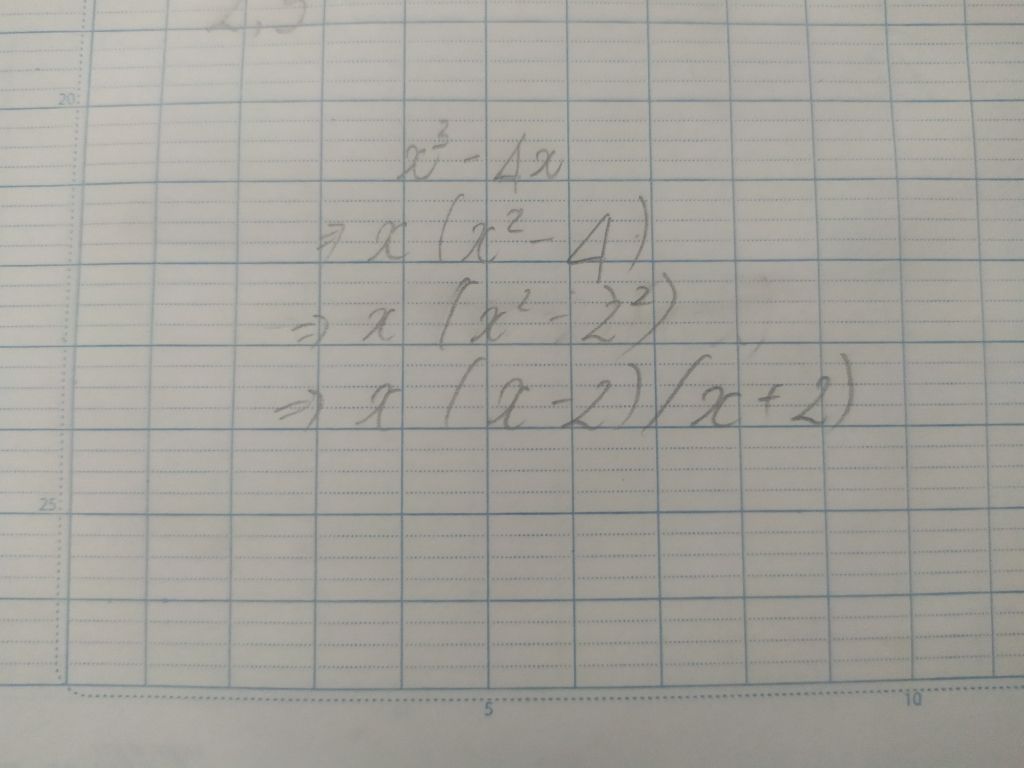 2,5
20
x³ - 4x
⇒ x (x² - 4)
⇒ x (x² - 2²)
⇒ x (x - 2) (x + 2)
25
5
10